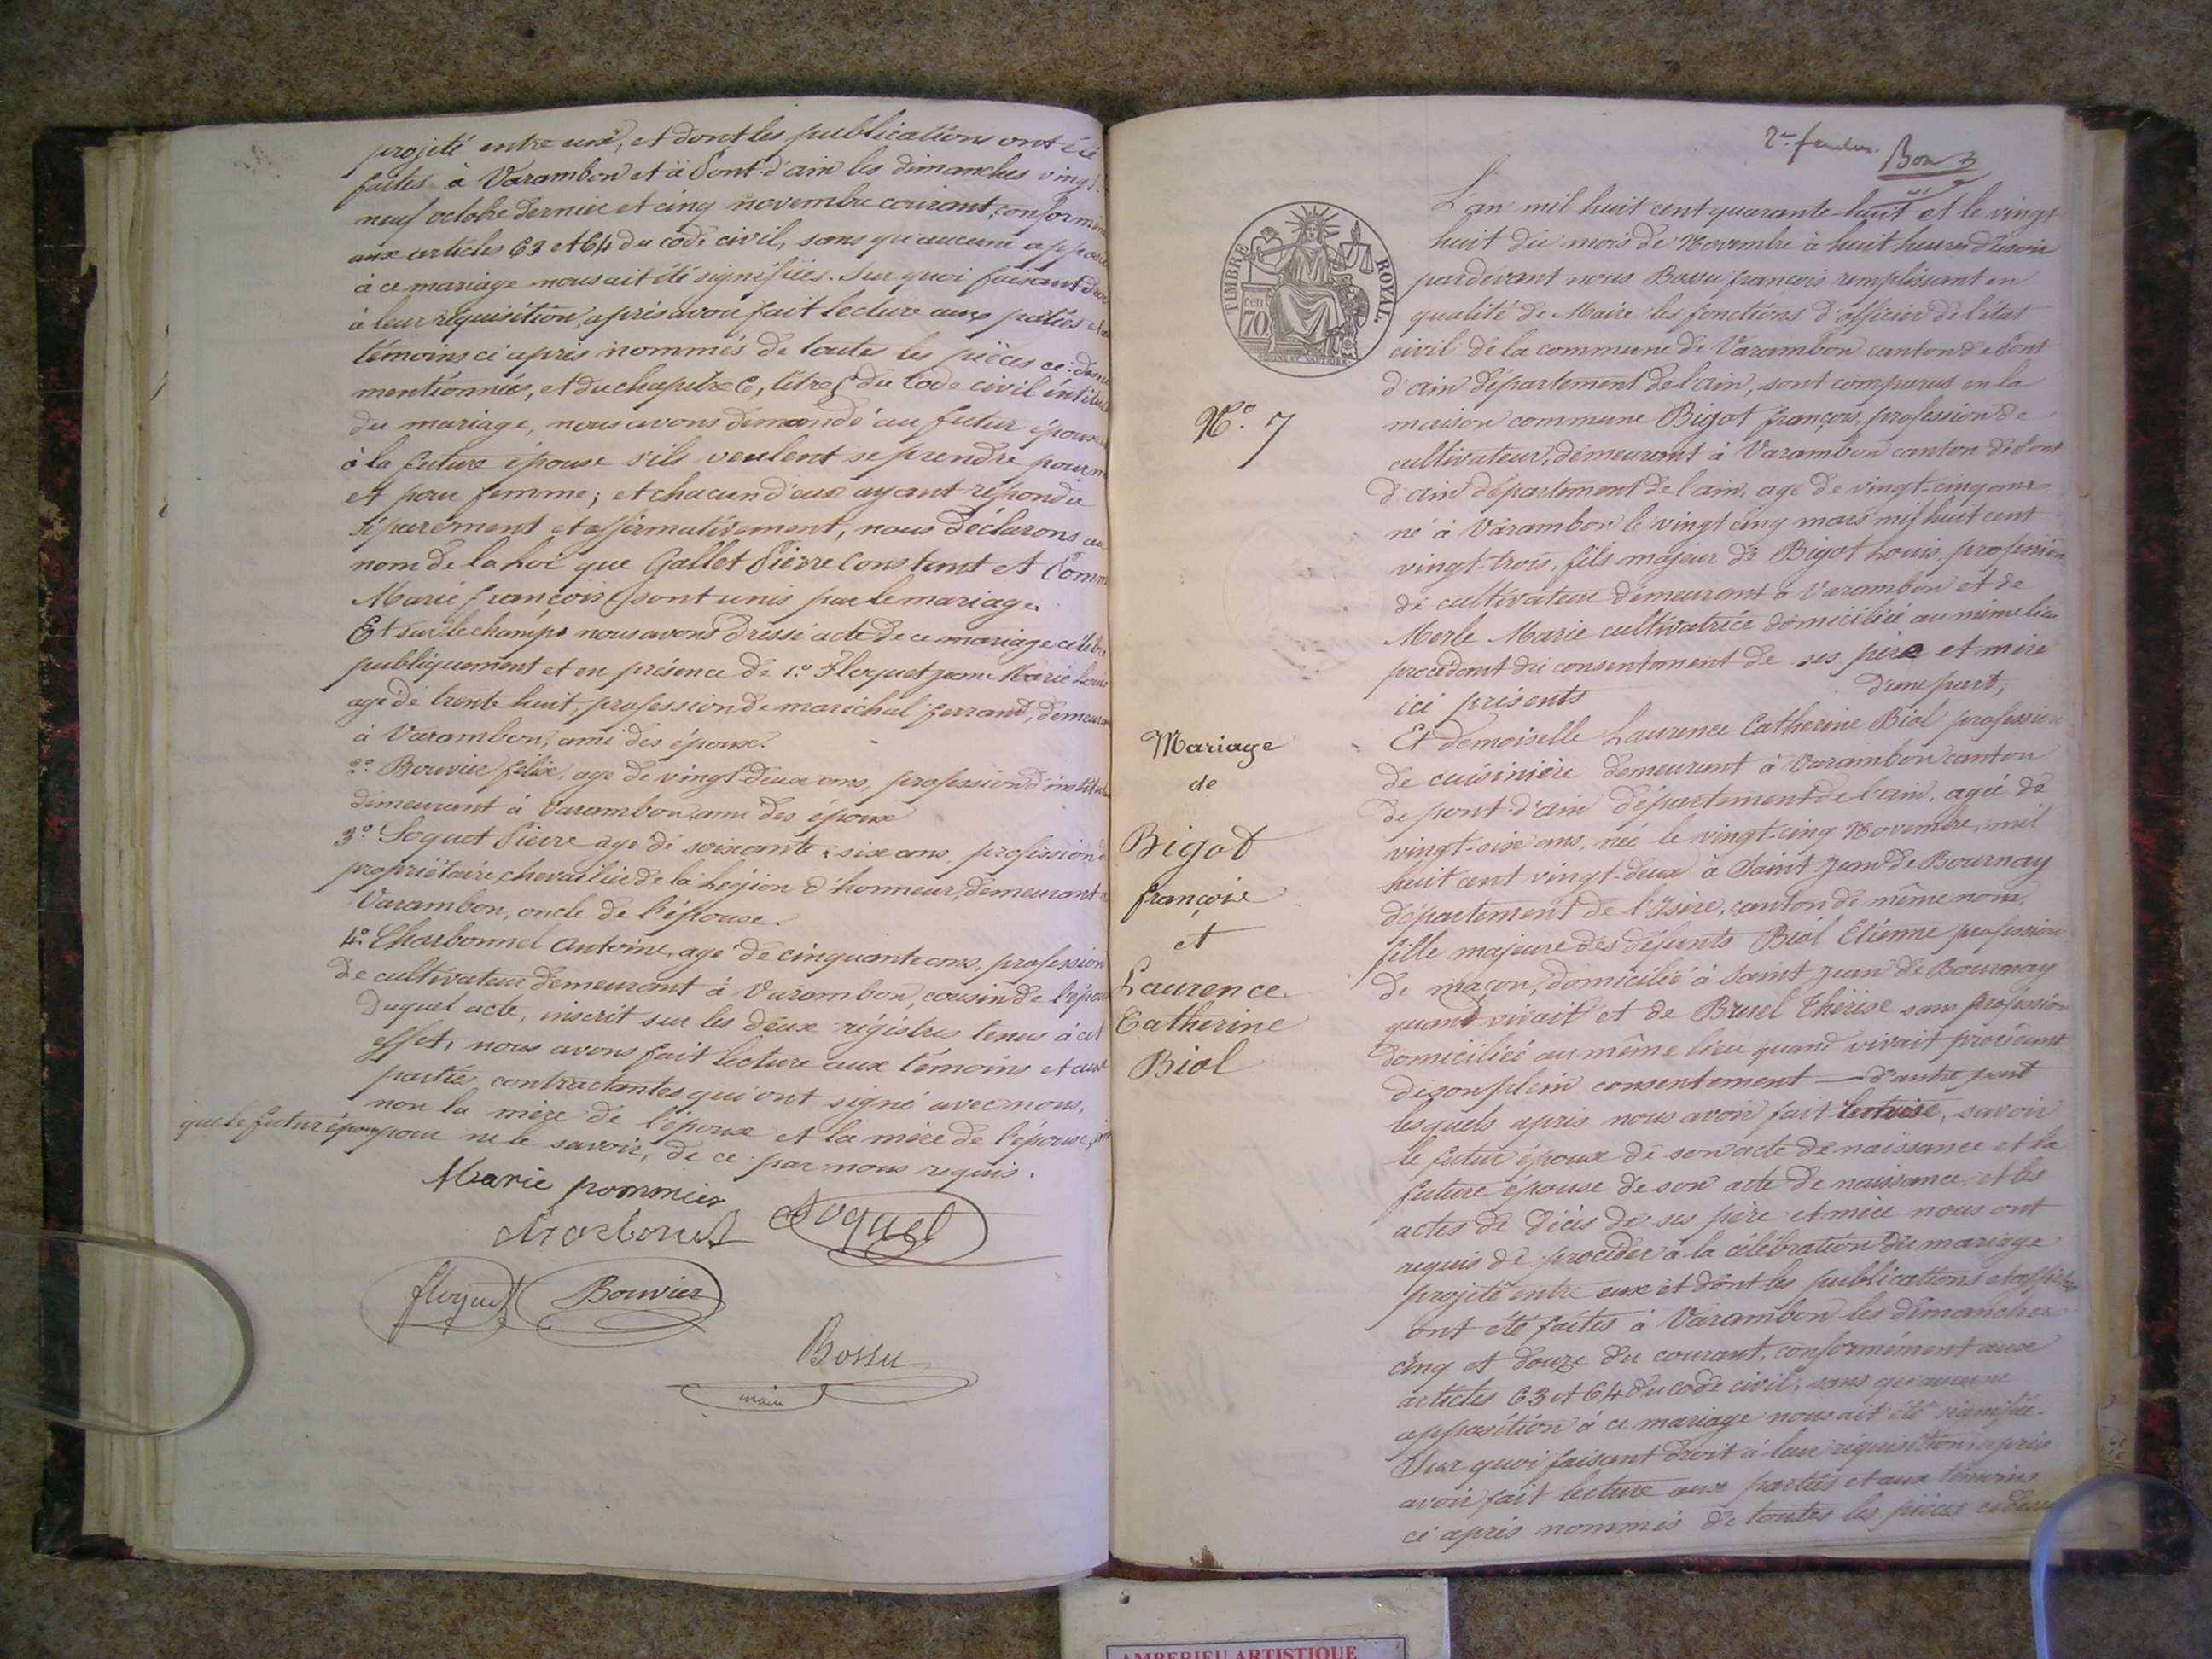 projeté entre eux, et dont les publications ont été
faites à Varambon et à Pont-d'ain les dimanches vingt-
neuf octobre dernier et cinq novembre courant, conformém
aux articles 63 et 64 du code civil, sans qu'aucune opposi
à ce mariage nous ait été signifiées. Sur quoi faisant droi
à leur réquisition, après avoir fait lecture aux parties et
témoins ci après nommés de toutes les pièces ci-dessus
mentionnées, et du chapitre 6, titre 5 du Code civil intitulé
du mariage, nous avons demandé au futur époux
à la future épouse s'ils veulent se prendre pour m
et pour femme; et chacun d'eux ayant répondu
séparement et affirmativement, nous déclarons au
nom de la Loi que Gallet Pierre Constant et Pomm
Marie françoise sont unis par le mariage.
Et sur le champs nous avons dressé acte de ce mariage célébré
publiquement et en présence de 1.º Floquet jean Marie Louis
agé de trente huit, profession de maréchal ferrand, demeuran
à Varambon, ami des époux.
2.º Bouvier félix, age de vingt-deux ans, profession d'institut
demeurant à Varambon ami des époux
3.º Soquet Pierre age de soixante-six ans, profession d
propriétaire, chevailier de la Légion d'honneur, demeurant à
Varambon, oncle de l'épouse.
4.º Charbonnel Antoine, age de cinquante ans, profession
de cultivateur demeurant à Varambon, cousin de l'épou
Duquel acte, inscrit sur les deux régistres tenus à cet
effet, nous avons fait lecture aux témoins et aux
parties contractantes qui ont signé avec nous,
non la mère de l'époux et la mère de l'épouse,
que le futur époux pour ne le savoir, de ce par nous requis.
Marie pommier
Charbonel Soquet
floquet Bouvier
Bossu
maire
Bon
TIMBRE ROYAL.
70
L'an mil huit cent quarante-huit et le vingt
huit du mois de Novembre à huit heures du soir
pardevant nous Bossu françois remplissant en
qualité de Maire les fonctions d'officier de l'état
civil de la commune de Varambon canton de Pont
d'ain département de l'ain, sont comparus en la
N.º 7
maison commune Bigot françois, profession de
cultivateur, demeurant à Varambon canton de Pont
d'ain département de l'ain, age de vingt-cinq ans
né à Varambon le vingt cinq mars mil huit cent
vingt-trois, fils majeur de Bigot Louis, profession
de cultivateur demeurant à Varambon et de
Merle Marie cultivatrice domiciliée au même lieu
procédant du consentement de ses père et mère
ici présents d'une part;
Mariage
de
Bigot
françois
et
Laurence
Catherine
Biol
Et demoiselle Laurence Catherine Biol profession
de cuisinière demeurant à Varambon canton
de pont-d'ain département de l'ain, agée de
vingt-six ans, née le vingt-cinq Novembre, mil
huit cent vingt-deux à Saint Jean de Bournay
département de l'Isère, canton de même nom,
fille majeure des défunts Biol Etienne profession
de maçon, domicilié à Saint Jean de Bournay
quand vivait et de Bruel Thérise sans profession
domiciliée au même lieu quand vivait procédant
de son plein consentement — d'autre part
lesquels après nous avoir fait lecture, savoir
le futur époux de son acte de naissance et la
future épouse de son acte de naissance, et les
actes de décès de ses père et mère nous ont
requis de procéder à la célébration du mariage
projeté entre eux et dont les publications et affiches
ont été faites à Varambon les dimanches
cinq et douze du courant, conformément aux
articles 63 et 64 du code civil, sans qu'aucune
opposition à ce mariage nous ait été signifiée.
Sur quoi faisant droit à leur réquisition, après
avoir fait lecture aux parties et aux témoins
ci après nommés de toutes les pièces cidessus
AMBERIEU ARTISTIQUE